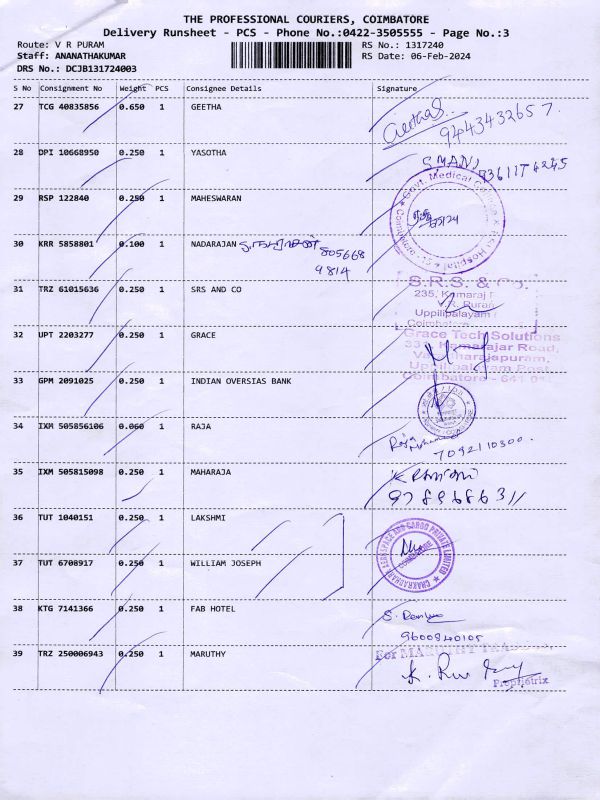 THE PROFESSIONAL COURIERS, COIMBATORE
Delivery Runsheet - PCS - Phone No.:0422-3505555 - Page No.:3
Route: V R PURAM RS No.: 1317240
Staff: ANANATHAKUMAR RS Date: 06-Feb-2024
DRS No.: DCJB131724003
S No Consignment No Weight PCS Consignee Details Signature
27 TCG 40835856 0.650 1 GEETHA Geetha S. 9443432657.
28 DPI 10668950 0.250 1 YASOTHA
29 RSP 122840 0.250 1 MAHESWARAN
Govt. Medical College & ESI Hospital
Coimbatore
30 KRR 5858801 0.100 1 NADARAJAN
805668
9814
31 TRZ 61015636 0.250 1 SRS AND CO
S.R.S. & Co.
235, Kamaraj
V.R. Puram
Uppilipalayam
Coimbatore
32 UPT 2203277 0.250 1 GRACE
Grace Tech Solutions
Kamarajar Road,
Varatharajapuram,
Uppilipalayam Post,
Coimbatore - 641
33 GPM 2091025 0.250 1 INDIAN OVERSIAS BANK
34 IXM 505856106 0.060 1 RAJA Raja
7092110300.
35 IXM 505815098 0.250 1 MAHARAJA
9789688311
36 TUT 1040151 0.250 1 LAKSHMI
CHAKRADHARA AEROSPACE AND CARGO PRIVATE LIMITED
COIMBATORE
37 TUT 6708917 0.250 1 WILLIAM JOSEPH
38 KTG 7141366 0.250 1 FAB HOTEL
9600840105
39 TRZ 250006943 0.250 1 MARUTHY
For MARUTHI
Proprietrix